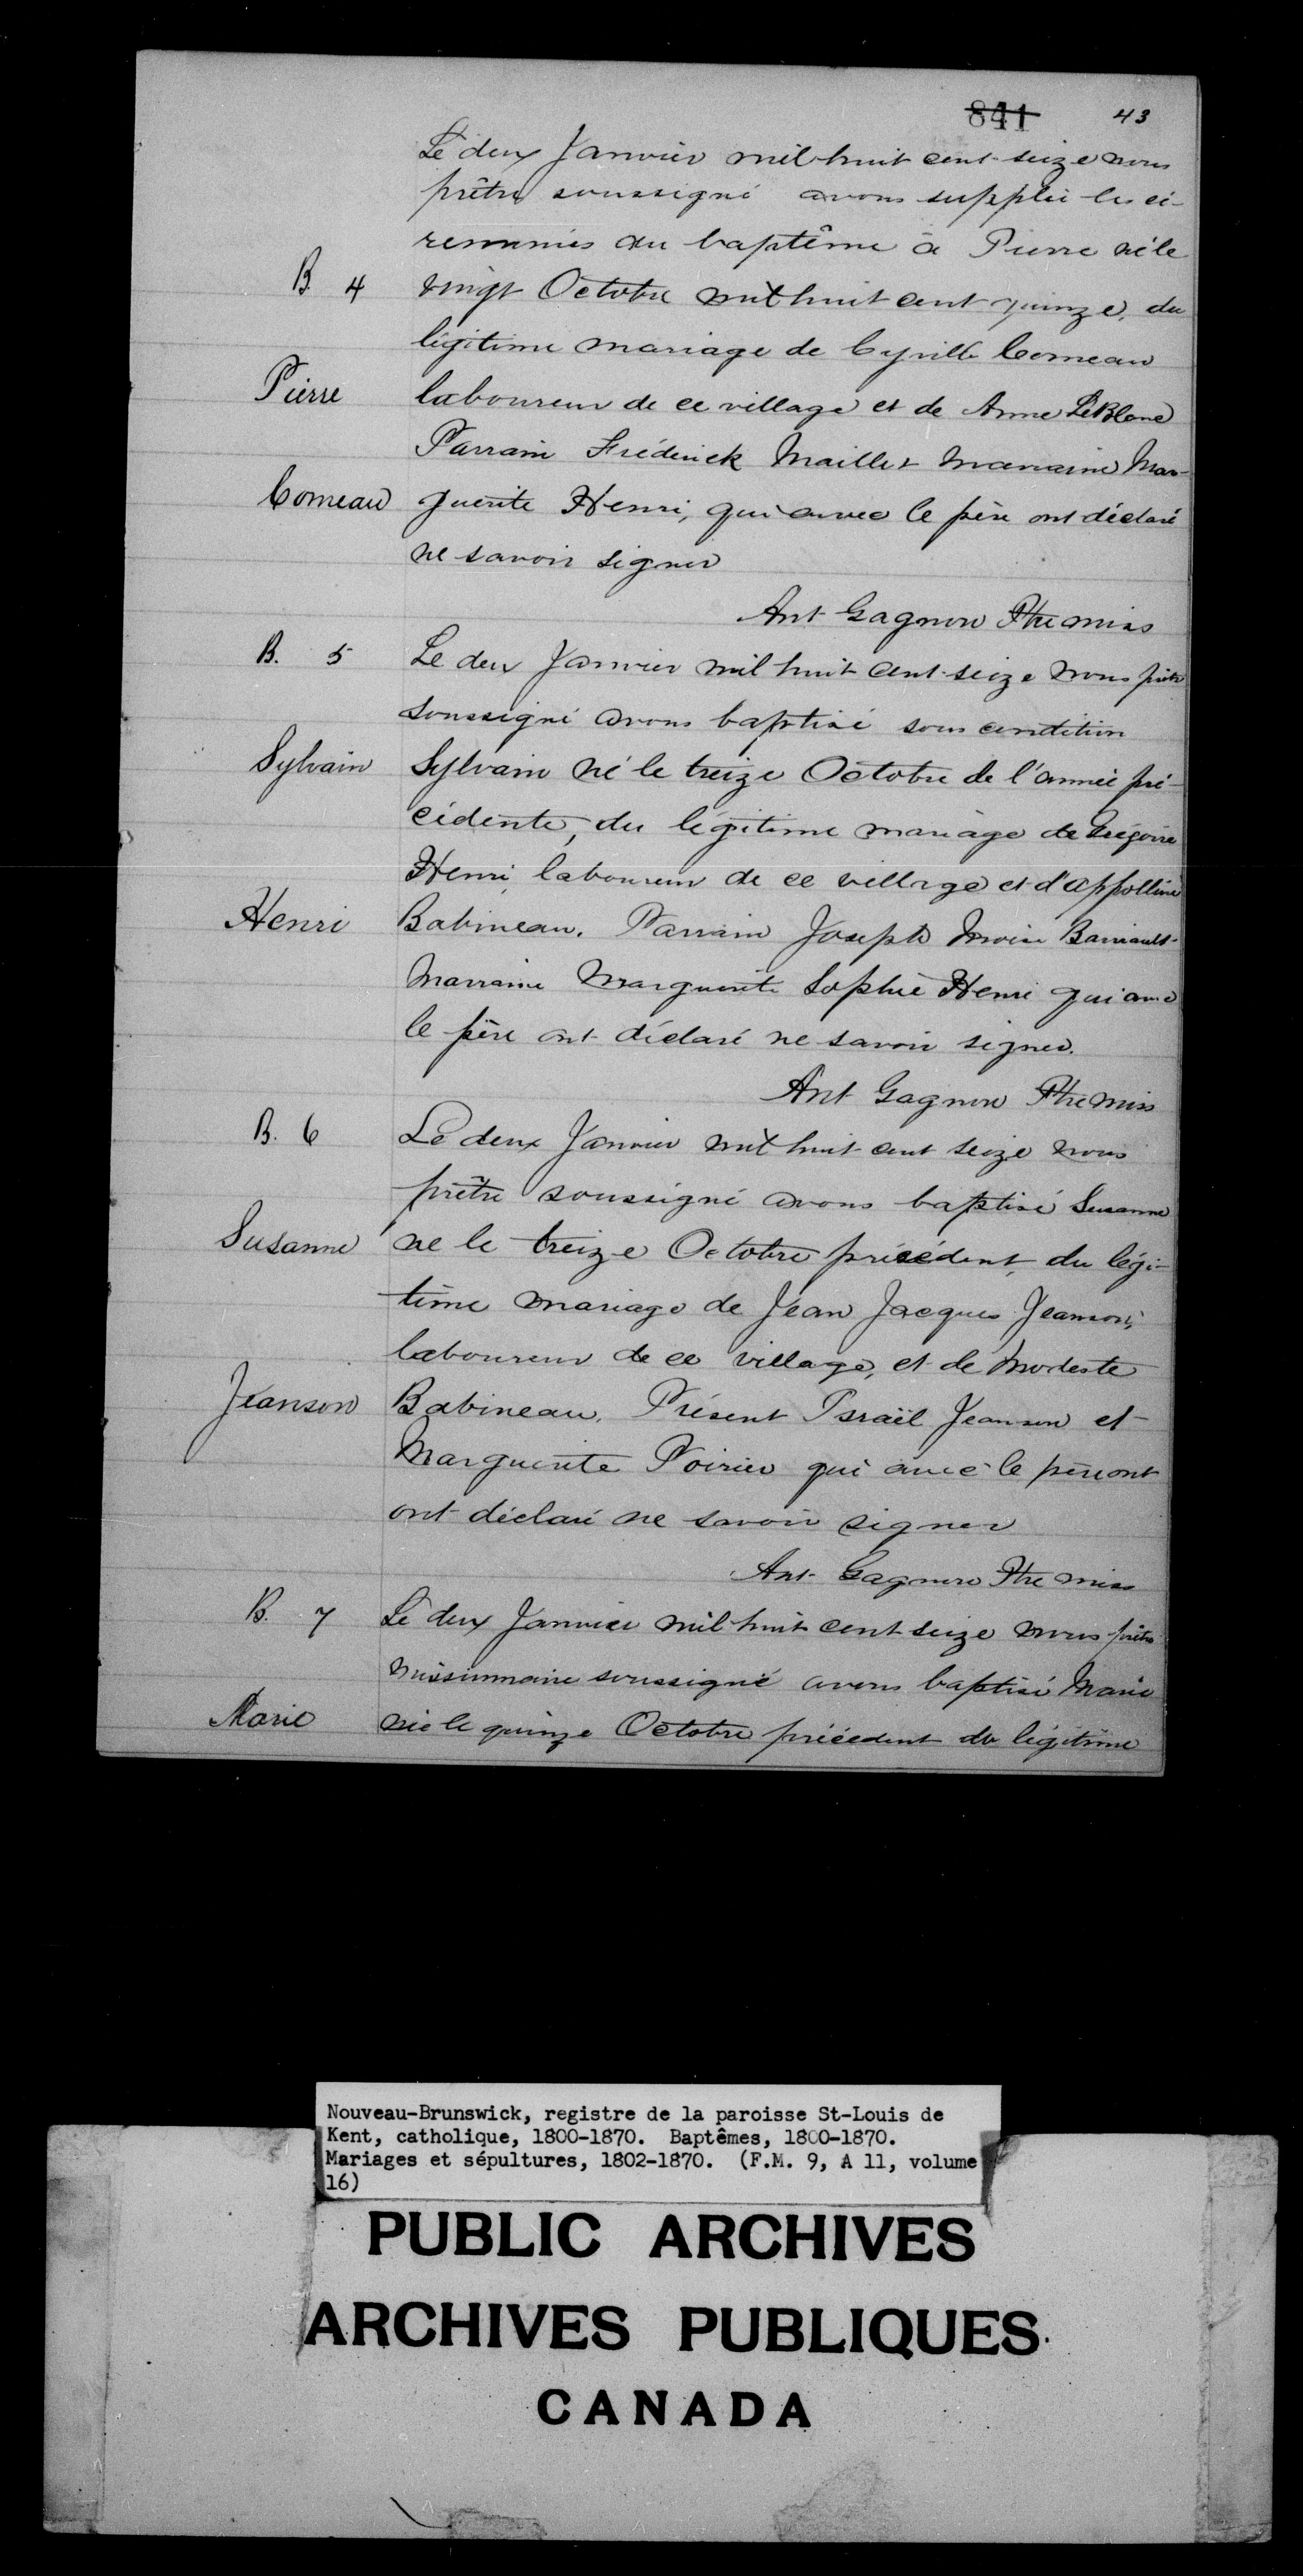 841 43
Le deux Janvier mil huit cent seize nous
prêtre soussigné avons supplée les cé-
remonies du baptême à Pierre né le
B. 4 vingt Octobre mil huit cent quinze, du
légitime mariage de Cyrille Comeau
Pierre laboureur de ce village et de Anne LeBlanc
Parrain Fréderick Maillet Marraine Mar-
Comeau guerite Henri, qui avec le père ont déclaré
ne savoir signer
Ant Gagnon Ptre miss
B. 5 Le deux Janvier mil huit cent seize nous prêtre
soussigné avons baptisé sous condition
Sylvain Sylvain né le treize Octobre de l'année pré-
cédente, du légitime mariage de Grégoire
Henri, laboureur de ce village et d'Appolline
Henri Babineau. Parrain Joseph Moïse Barriault
Marraine Marguerite Sophie Henri qui avec
le père ont déclaré ne savoir signer.
Ant Gagnon Ptre Miss
B. 6 Le deux Janvier mil huit cent seize nous
prêtre soussigné avons baptisé Susanne
Susanne ne le treize Octobre précédent, du légi-
time mariage de Jean Jacques Jeanson,
laboureur de ce village, et de Modeste
Jeanson Babineau. Présent Israël Jeanson et
Marguerite Poirier qui avec le père ont
ont déclaré ne savoir signer
Ant Gagnon Ptre miss
B. 7 Le deux Janvier mil huit cent seize nous prêtre
missionnaire soussigné avons baptisé Marie
Marie née le quinze Octobre précédent du légitime
Nouveau-Brunswick, registre de la paroisse St-Louis de
Kent, catholique, 1800-1870. Baptêmes, 1800-1870.
Mariages et sépultures, 1802-1870. (F.M. 9, A 11, volume
16)
PUBLIC ARCHIVES
ARCHIVES PUBLIQUES
CANADA